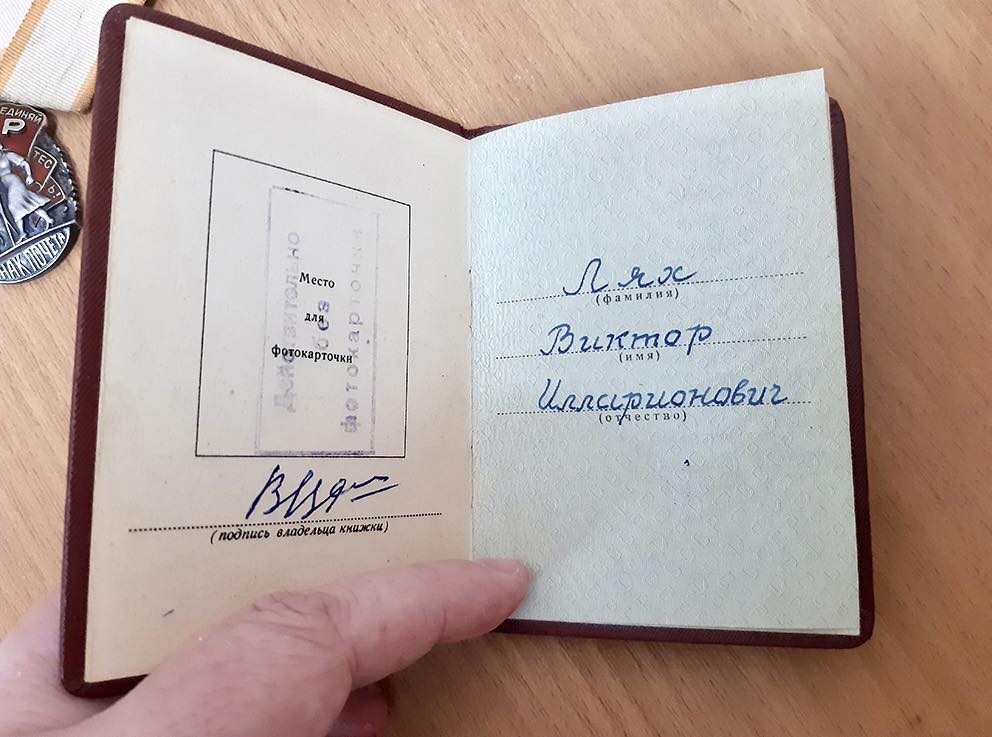 ЕДИНЯЙ
Р
ТЕС
Ь!
НАК ПОЧЕТА
Место
для
фотокарточки
Действительно
без
фотокарточки
(подпись владельца книжки)
Лях
(фамилия)
Виктор
(имя)
Илларионович
(отчество)